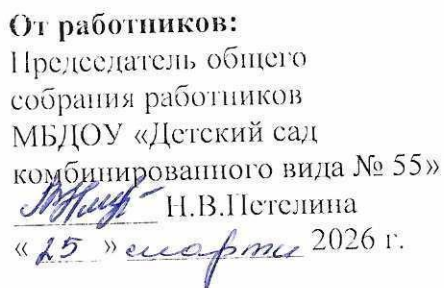 От работников:
Председатель общего
собрания работников
МБДОУ «Детский сад
комбинированного вида № 55»
Н.В.Петелина
«25» марта 2026 г.